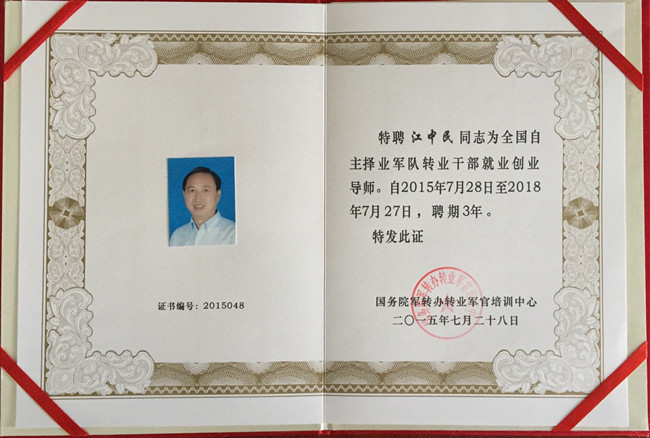 证书编号：2015048
特聘 江中民 同志为全国自
主择业军队转业干部就业创业
导师。自2015年7月28日至2018
年7月27日，聘期3年。
特发此证
国务院军转办转业军官培训中心
二〇一五年七月二十八日